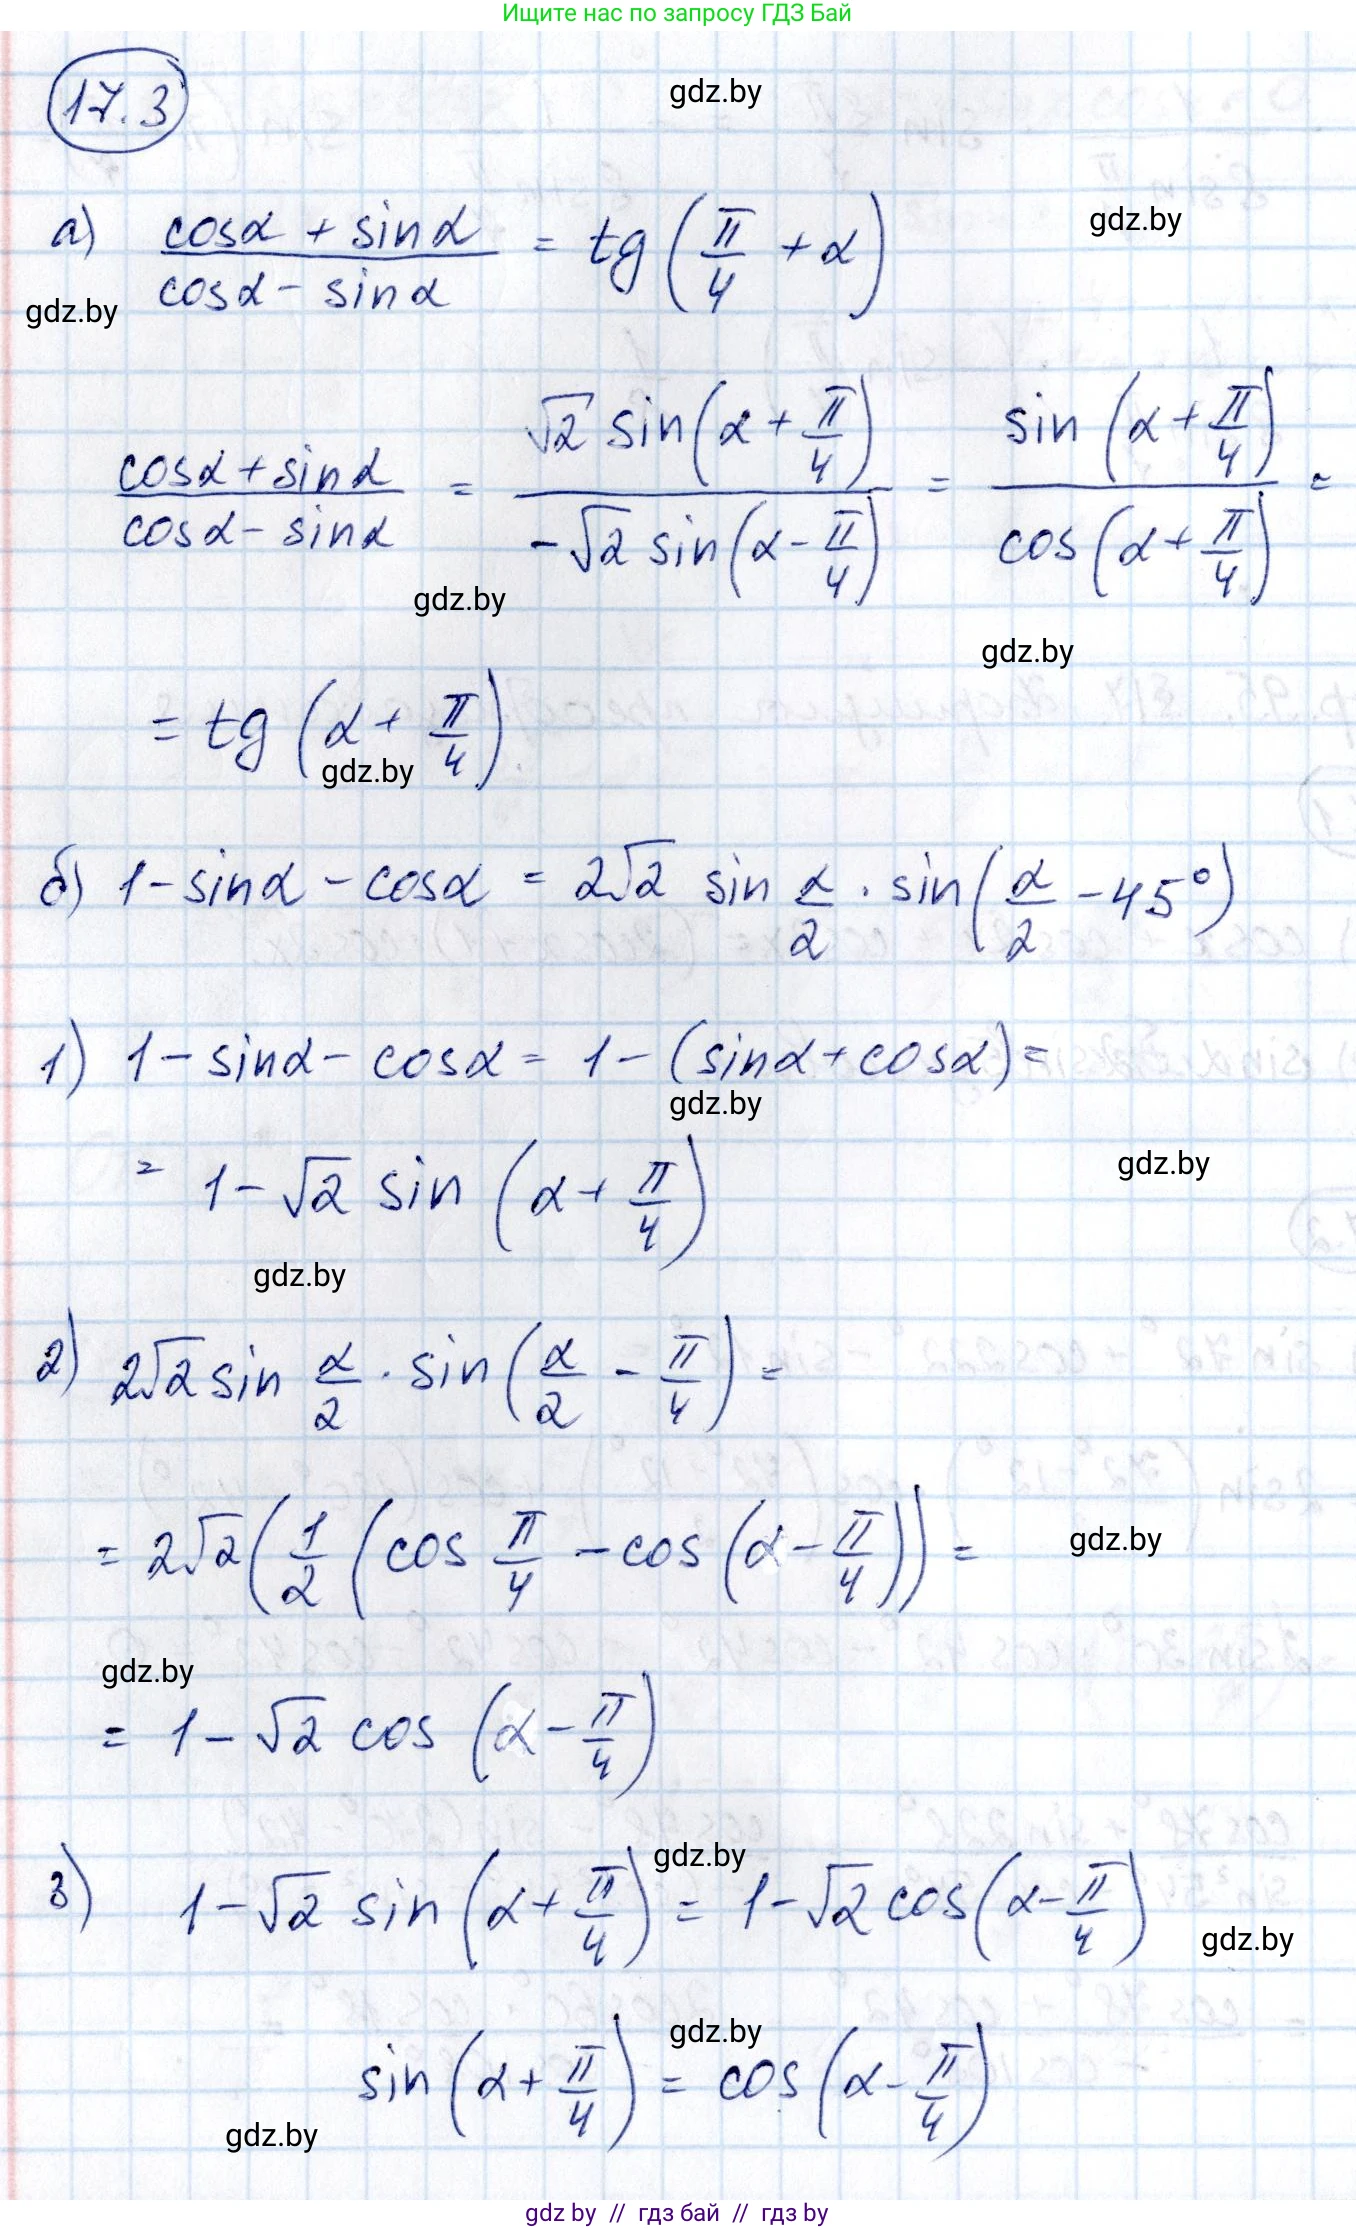 Ищите нас по запросу ГДЗ Бай
17.3
gdz.by
а) (cosα + sinα)/(cosα - sinα) = tg(π/4 + α)
gdz.by
gdz.by
(cosα + sinα)/(cosα - sinα) = (√2 sin(α + π/4))/(-√2 sin(α - π/4)) = (sin(α + π/4))/(cos(α + π/4)) =
gdz.by
gdz.by
= tg(α + π/4)
gdz.by
б) 1 - sinα - cosα = 2√2 sin α/2 · sin(α/2 - 45°)
1) 1 - sinα - cosα = 1 - (sinα + cosα) =
gdz.by
= 1 - √2 sin(α + π/4)
gdz.by
gdz.by
2) 2√2 sin α/2 · sin(α/2 - π/4) =
= 2√2(1/2(cos π/4 - cos(α - π/4)) =
gdz.by
gdz.by
= 1 - √2 cos(α - π/4)
gdz.by
3) 1 - √2 sin(α + π/4) = 1 - √2 cos(α - π/4)
gdz.by
gdz.by
sin(α + π/4) = cos(α - π/4)
gdz.by
gdz by // гдз бай // гдз by